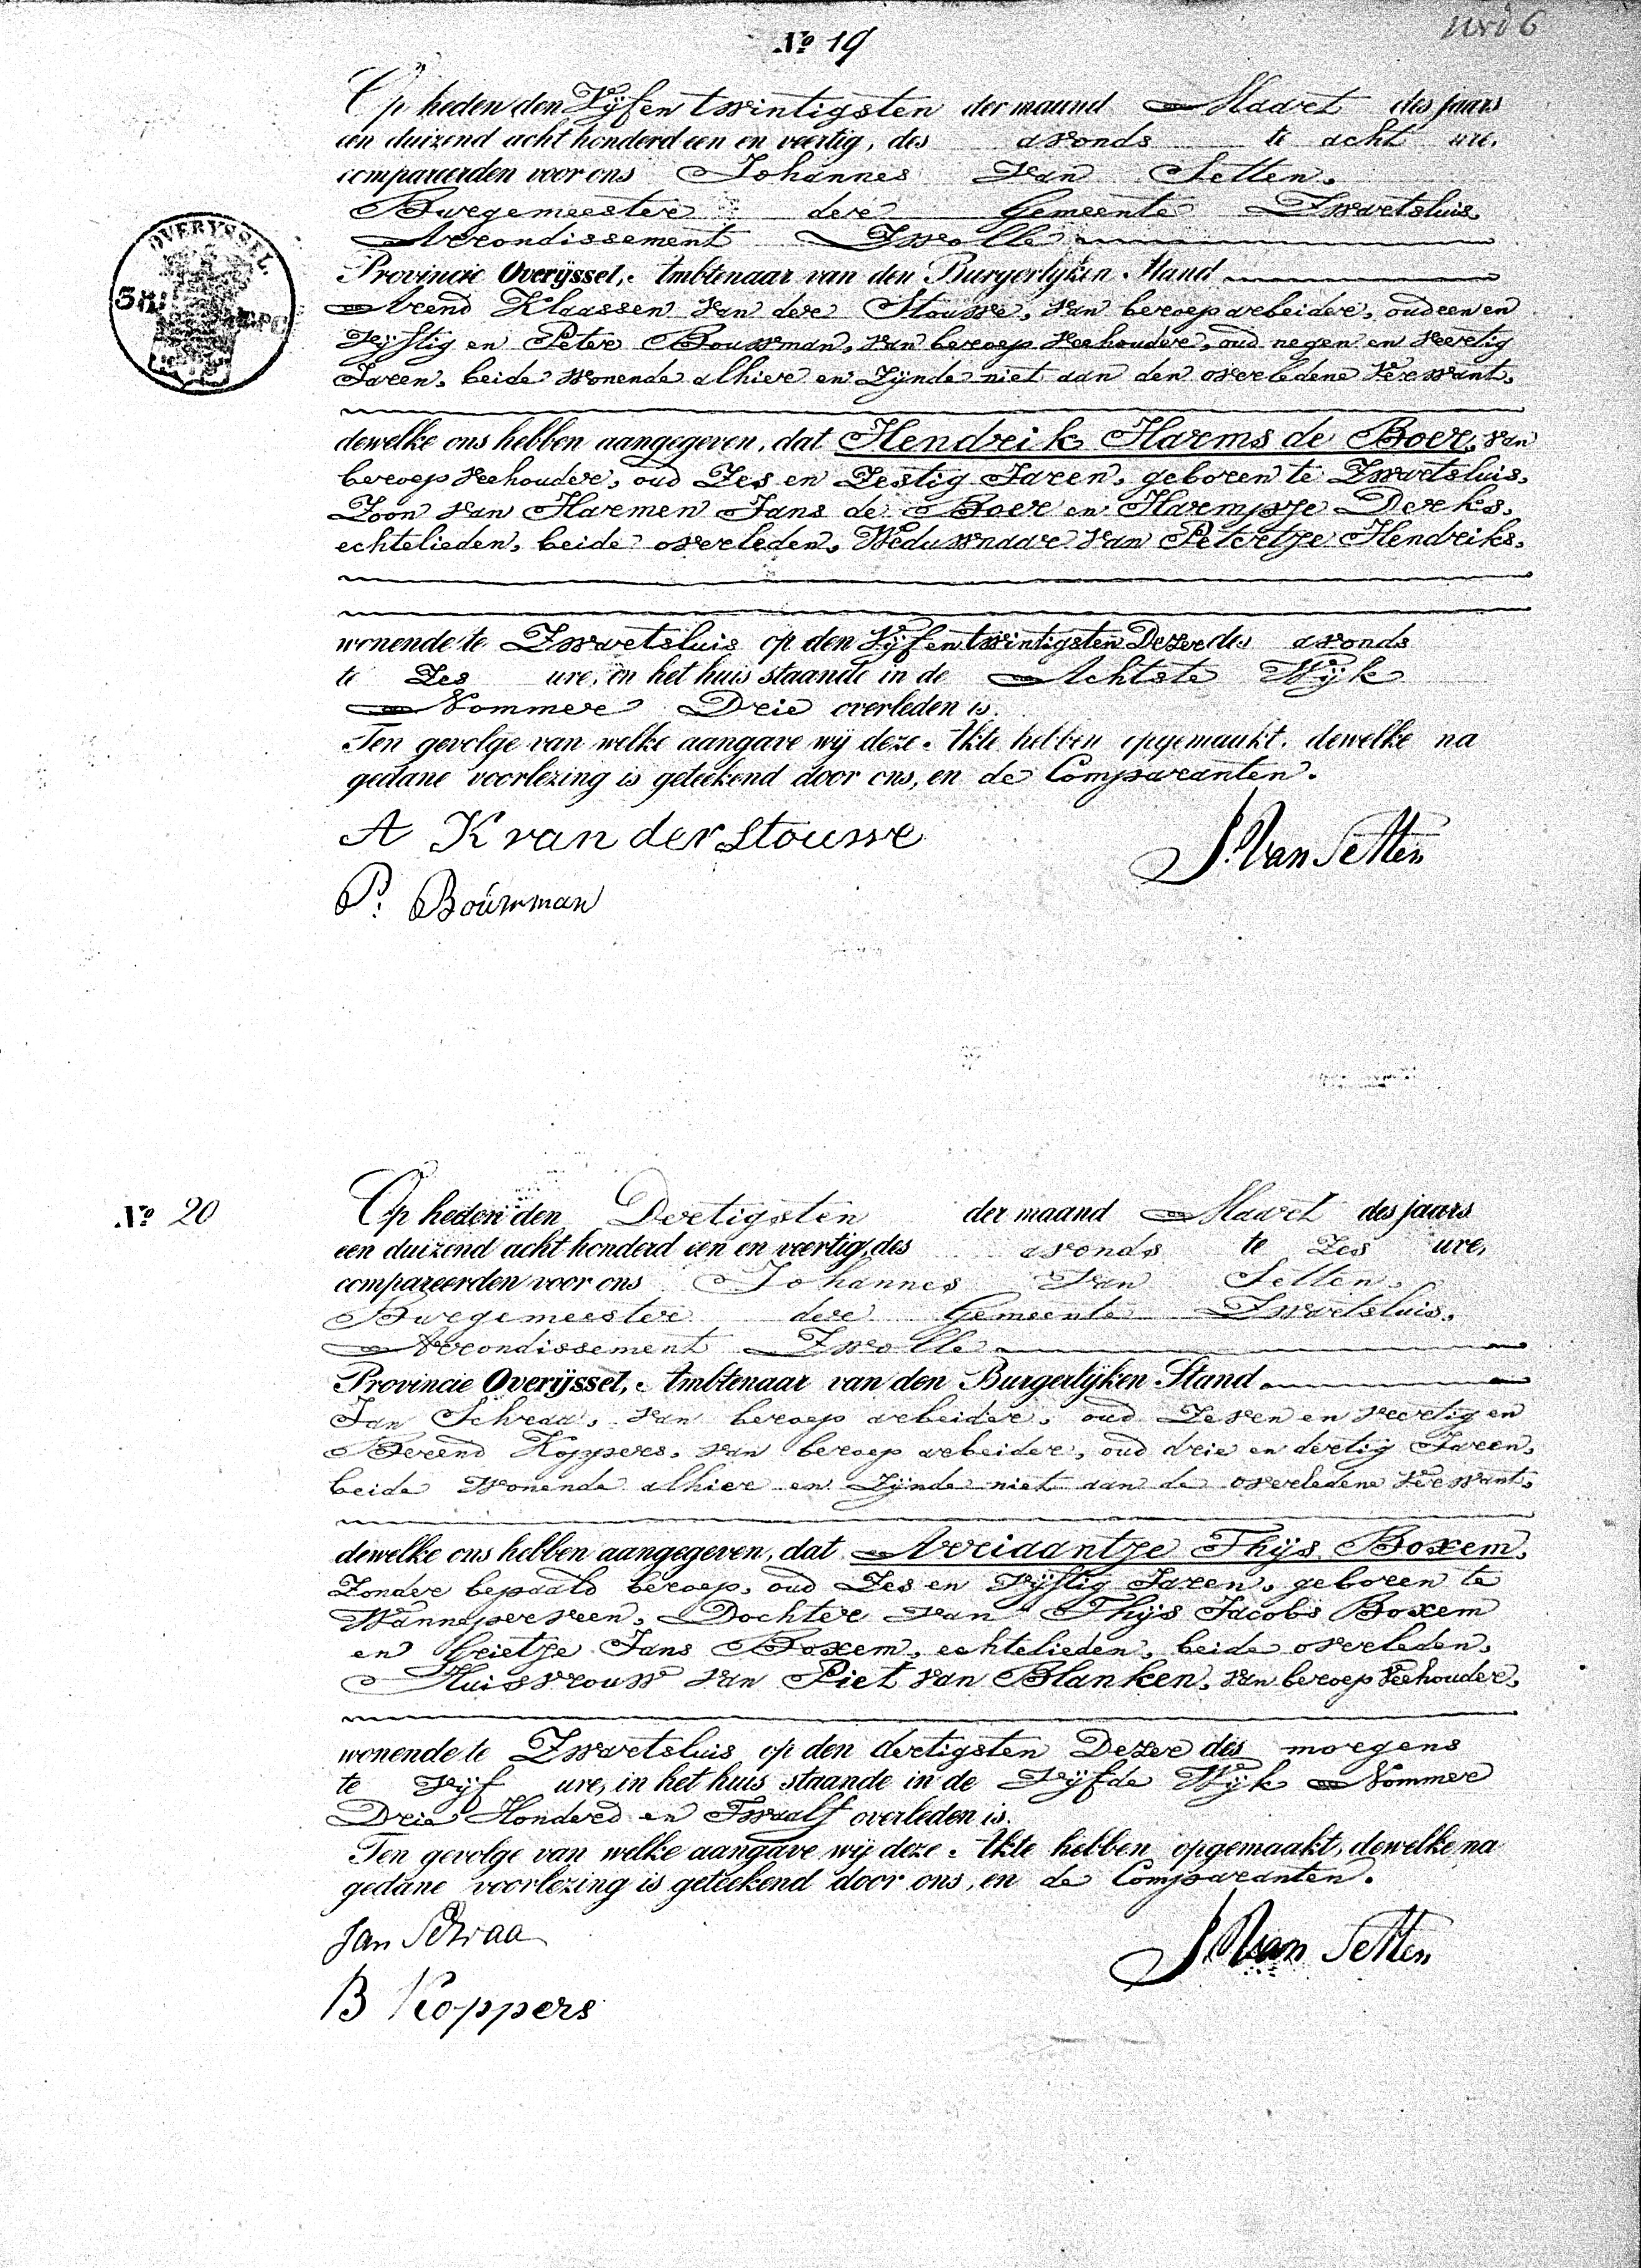 No 19
Op heden den Vijfentwintigsten der maand Maart des jaars
een duizend acht honderd een en veertig, des avonds te acht ure,
compareerden voor ons Johannes van Setten,
Burgemeester der Gemeente Zwartsluis
Arrondissement Zwolle
OVERYSSEL.
Provincie Overijssel, Ambtenaar van den Burgerlijken Stand
Arend Klaassen van der Stouwe, van beroep arbeider, oud een en
vijftig en Peter Bouwman, van beroep veehouder, oud negen en veertig
Jaren, beide wonende alhier en zijnde niet aan den overledene verwant,
dewelke ons hebben aangegeven, dat Hendrik Harms de Boer, van
beroep veehouder, oud Zes en Zestig Jaren, geboren te Zwartsluis,
Zoon van Harmen Jans de Boer en Harmpje Derks,
echtelieden, beide overleden, Weduwnaar van Petertje Hendriks,
wonende te Zwartsluis op den Vijfentwintigsten Dezer des avonds
te Zes ure, in het huis staande in de Achtste Wijk
Nommer Drie overleden is.
Ten gevolge van welke aangave wij deze Akte hebben opgemaakt, dewelke na
gedane voorlezing is geteekend door ons, en de Comparanten.
A K van der Stouwe
J. Van Setten
P: Boúwman
No 20
Op heden den Dertigsten der maand Maart des jaars
een duizend acht honderd een en veertig, des avonds te Zes ure,
compareerden voor ons Johannes van Setten,
Burgemeester der Gemeente Zwartsluis,
Arrondissement Zwolle
Provincie Overijssel, Ambtenaar van den Burgerlijken Stand
Jan Schraa, van beroep arbeider, oud Zeven en veertig en
Berend Koppers, van beroep arbeider, oud drie en dertig Jaren,
beide Wonende alhier en zijnde niet aan de overledene verwant,
dewelke ons hebben aangegeven, dat Arriaantje Thijs Boxem,
Zonder bepaald beroep, oud Zes en vijftig Jaren, geboren te
Wanneperveen, Dochter van Thijs Jacobs Boxem
en Grietje Jans Boxem, echtelieden, beide overleden,
Huisvrouw van Piet van Blanken, van beroep veehouder,
wonende te Zwartsluis op den dertigsten Dezer des morgens
te vijf ure, in het huis staande in de vijfde Wijk Nommer
Drie Honderd en Twaalf overleden is.
Ten gevolge van welke aangave wij deze Akte hebben opgemaakt, dewelke na
gedane voorlezing is geteekend door ons, en de Comparanten.
Jan Schraa
J. Van Setten
B Koppers